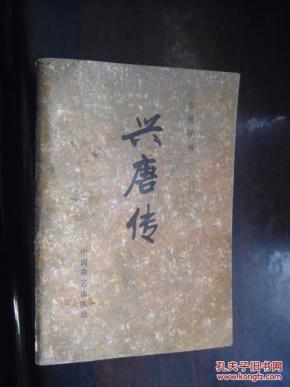 传统评书
兴唐传
中国曲艺出版社
孔夫子旧书网